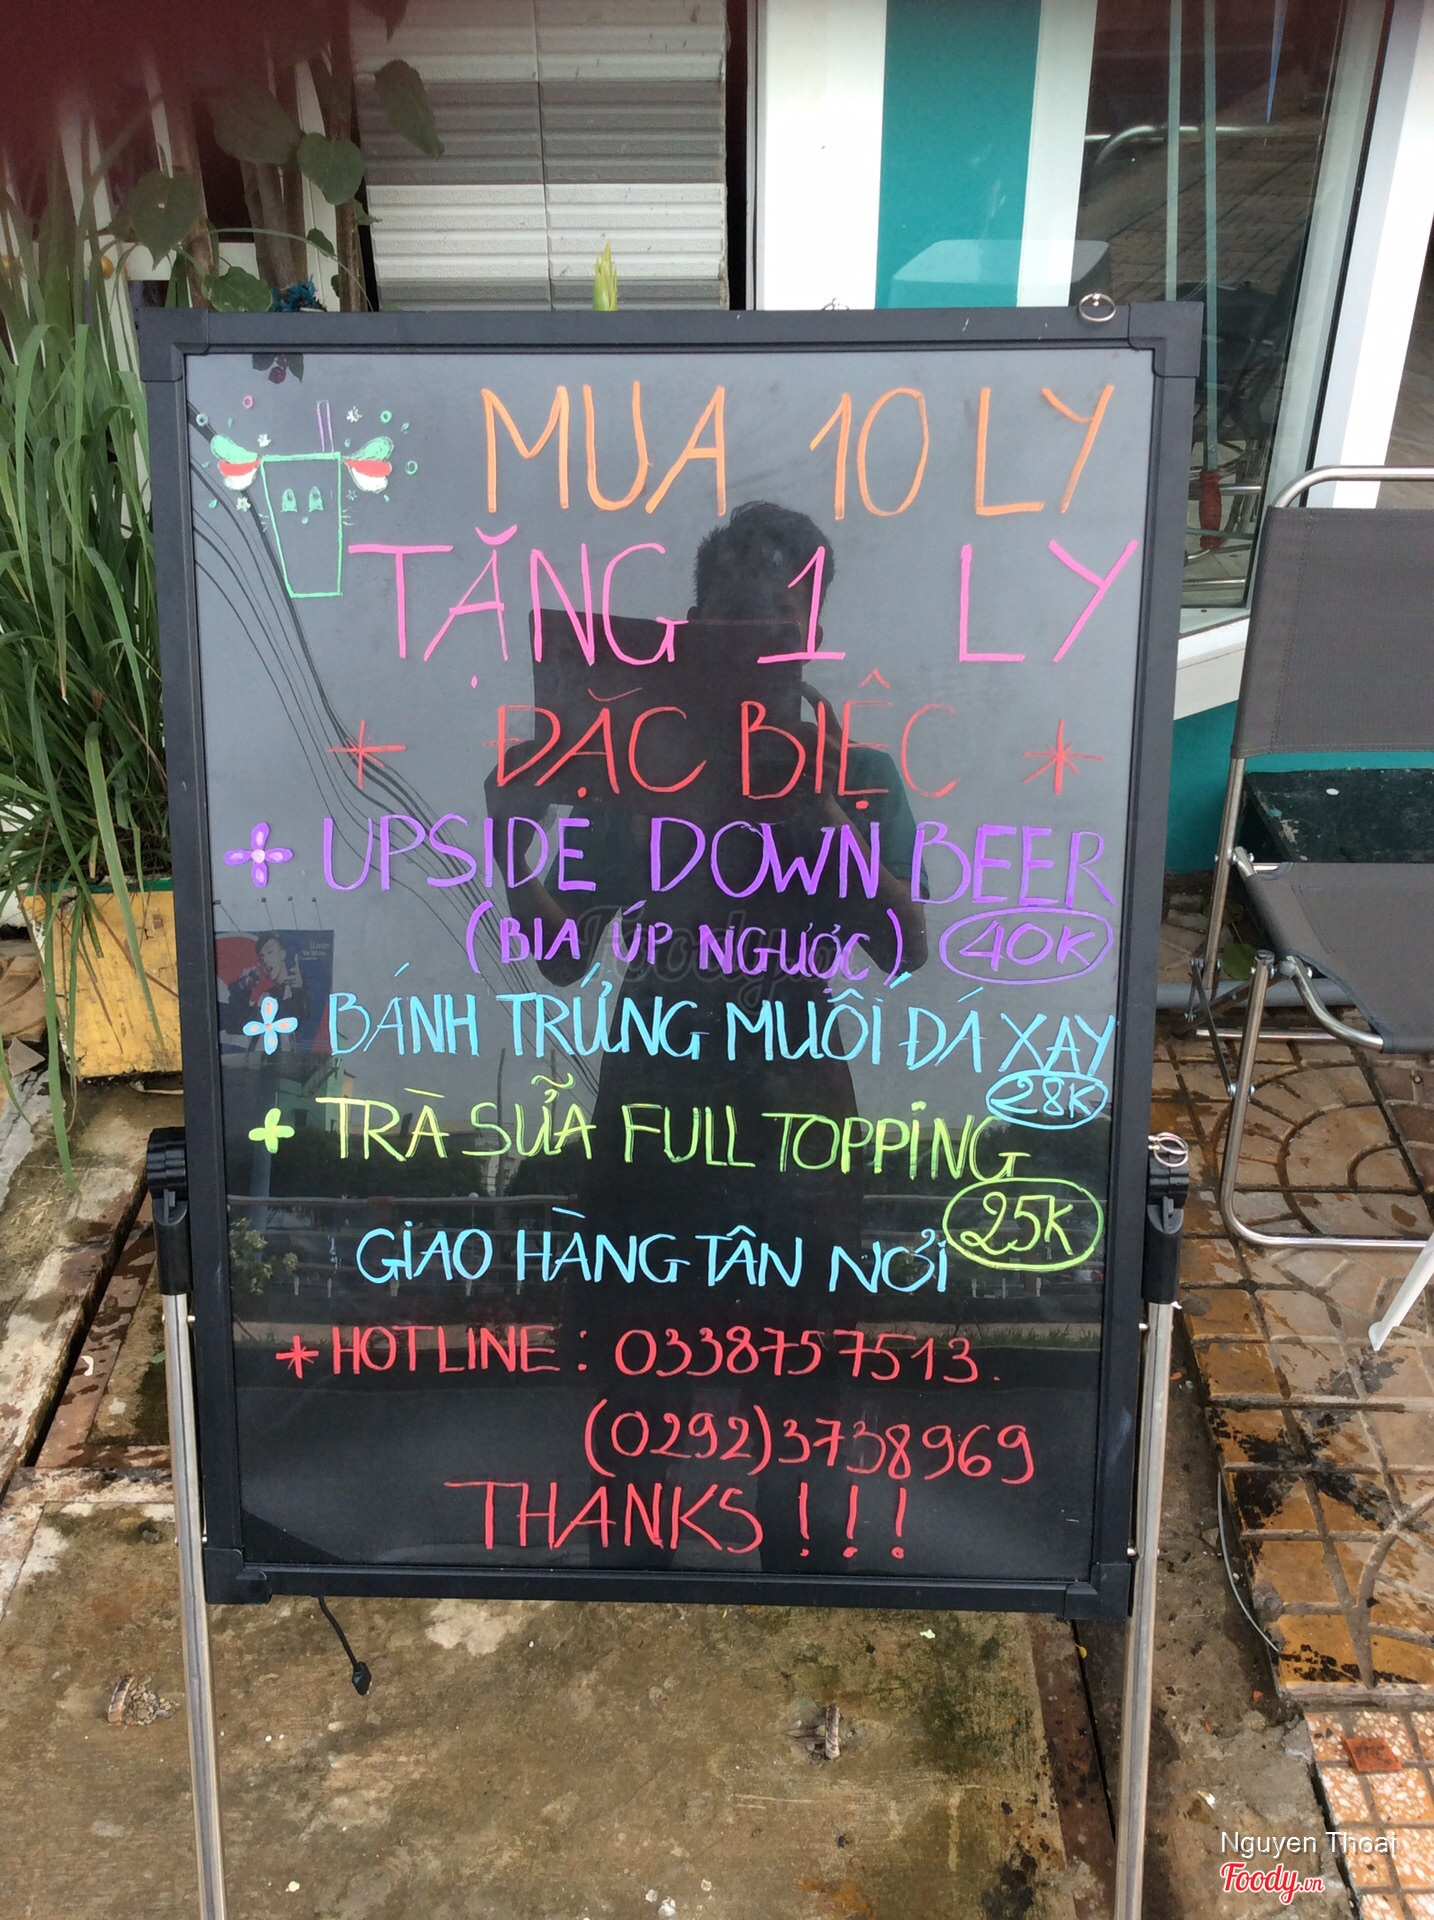 MUA 10 LY
TẶNG 1 LY
* ĐẶC BIỆC *
+ UPSIDE DOWN BEER
(BIA ÚP NGƯỢC) 40K
+ BÁNH TRỨNG MUỐI ĐÁ XAY
28K
+ TRÀ SỮA FULL TOPPING
25K
GIAO HÀNG TÂN NƠI
* HOTLINE : 0338757513.
(0292)3738969
THANKS !!!
Foody
Nguyen Thoai
Foody.vn